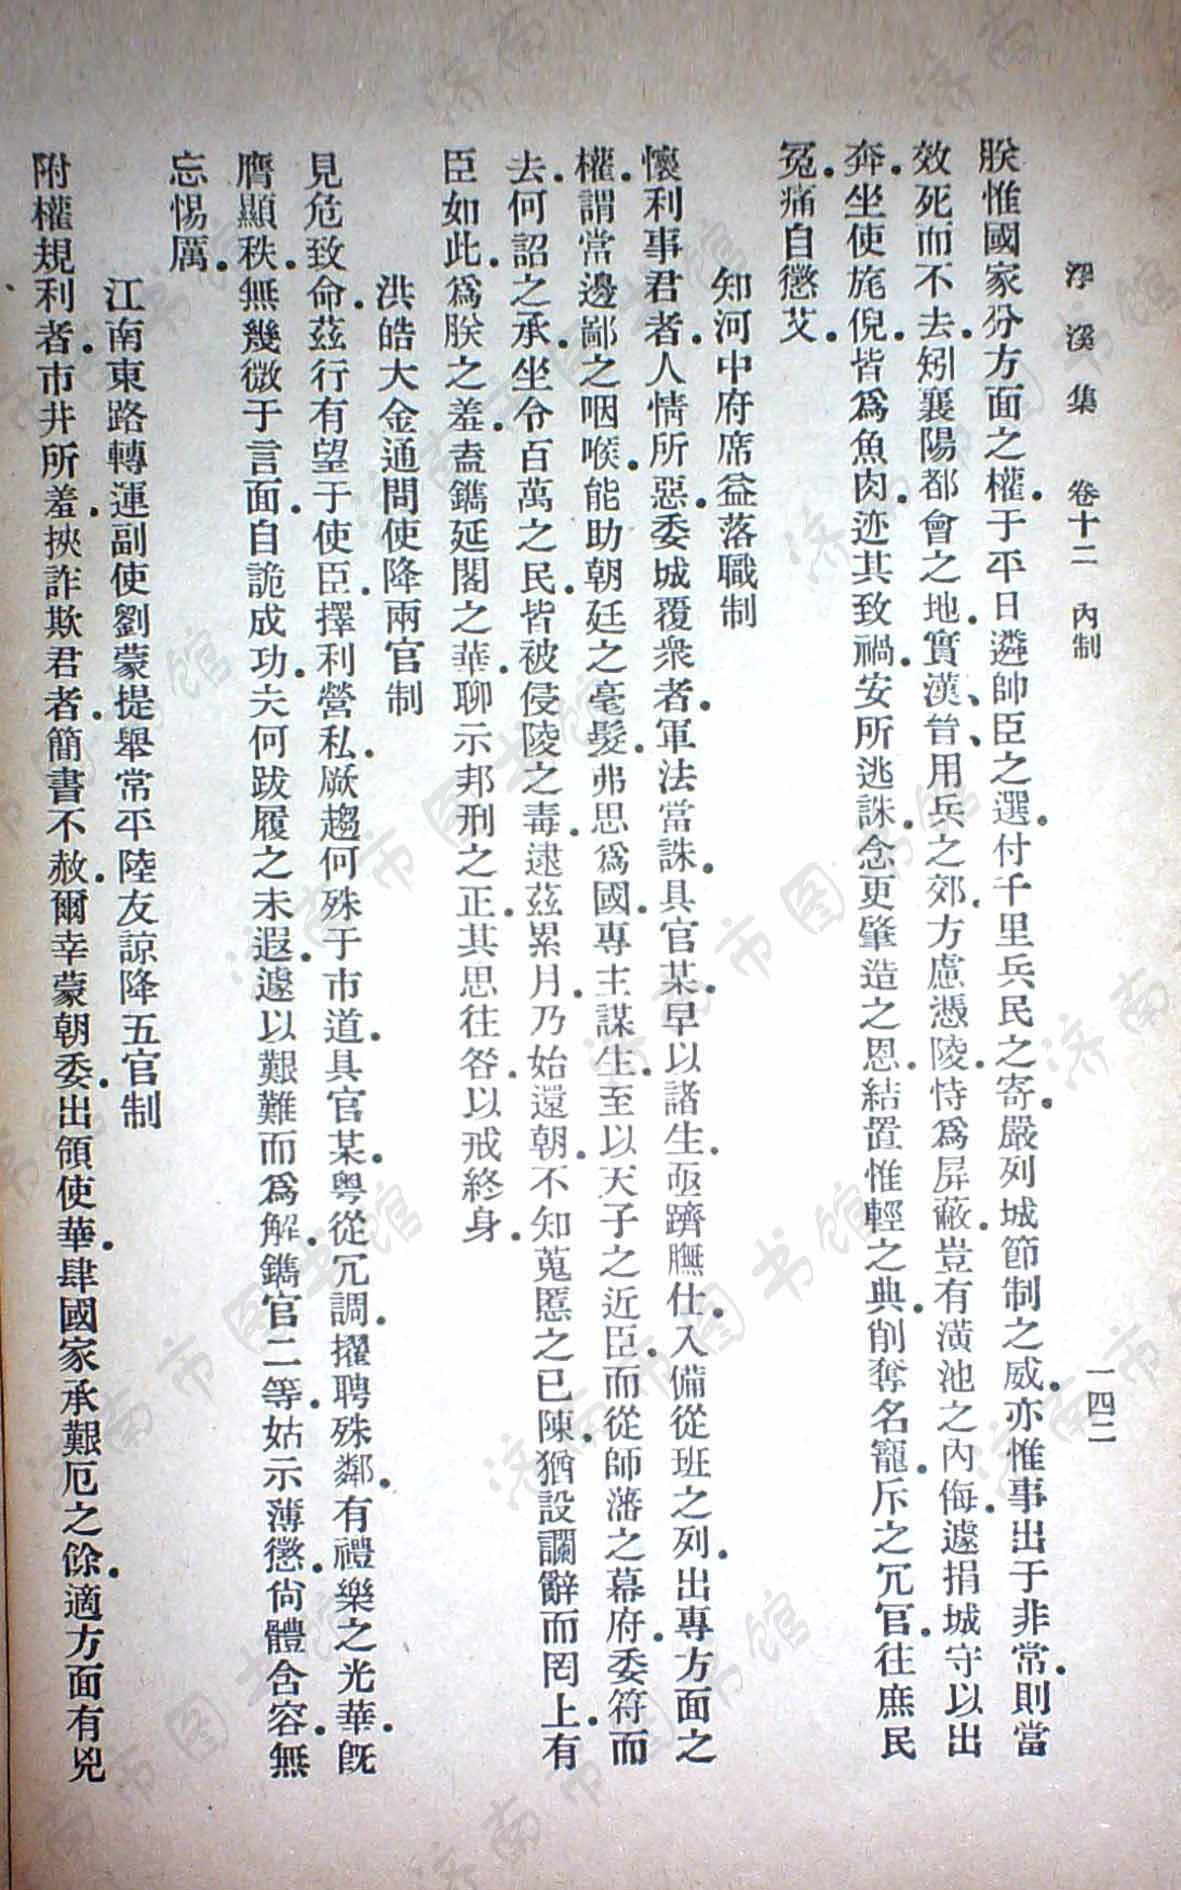 浮溪集 卷十二 內制 一四二
朕惟國家分方面之權．于平日遴帥臣之選．付千里兵民之寄．嚴列城節制之威．亦惟事出于非常．則當
效死而不去．矧襄陽都會之地．實漢、晉、用兵之郊．方慮憑陵．恃爲屏蔽．豈有潢池之內侮．遽捐城守以出
奔．坐使旄倪．皆爲魚肉．迹其致禍．安所逃誅．念更肇造之恩．結置惟輕之典．削奪名寵．斥之冗官．往庶民
冤．痛自懲艾．
知河中府席益落職制
懷利事君者．人情所惡．委城覆衆者．軍法當誅．具官某．早以諸生．亟躋膴仕．入備從班之列．出專方面之
權．謂當邊鄙之咽喉．能助朝廷之毫髮．弗思爲國．專主謀生．至以天子之近臣．而從師藩之幕府．委符而
去．何詔之承．坐令百萬之民．皆被侵陵之毒．逮茲累月．乃始還朝．不知蒐慝之已陳．猶設讕辭而罔上．有
臣如此．爲朕之羞．盍鐫延閣之華．聊示邦刑之正．其思往咎．以戒終身．
洪皓大金通問使降兩官制
見危致命．茲行有望于使臣．擇利營私．厥趨何殊于市道．具官某．粤從冗調．擢聘殊鄰．有禮樂之光華．旣
膺顯秩．無幾微于言面．自詭成功．夫何跋履之未遐．遽以艱難而爲解．鐫官二等．姑示薄懲．尙體含容．無
忘惕厲．
江南東路轉運副使劉蒙提舉常平陸友諒降五官制
附權規利者．市井所羞．挾詐欺君者．簡書不赦．爾幸蒙朝委．出領使華．肆國家承艱厄之餘．適方面有兇
济南市图书馆